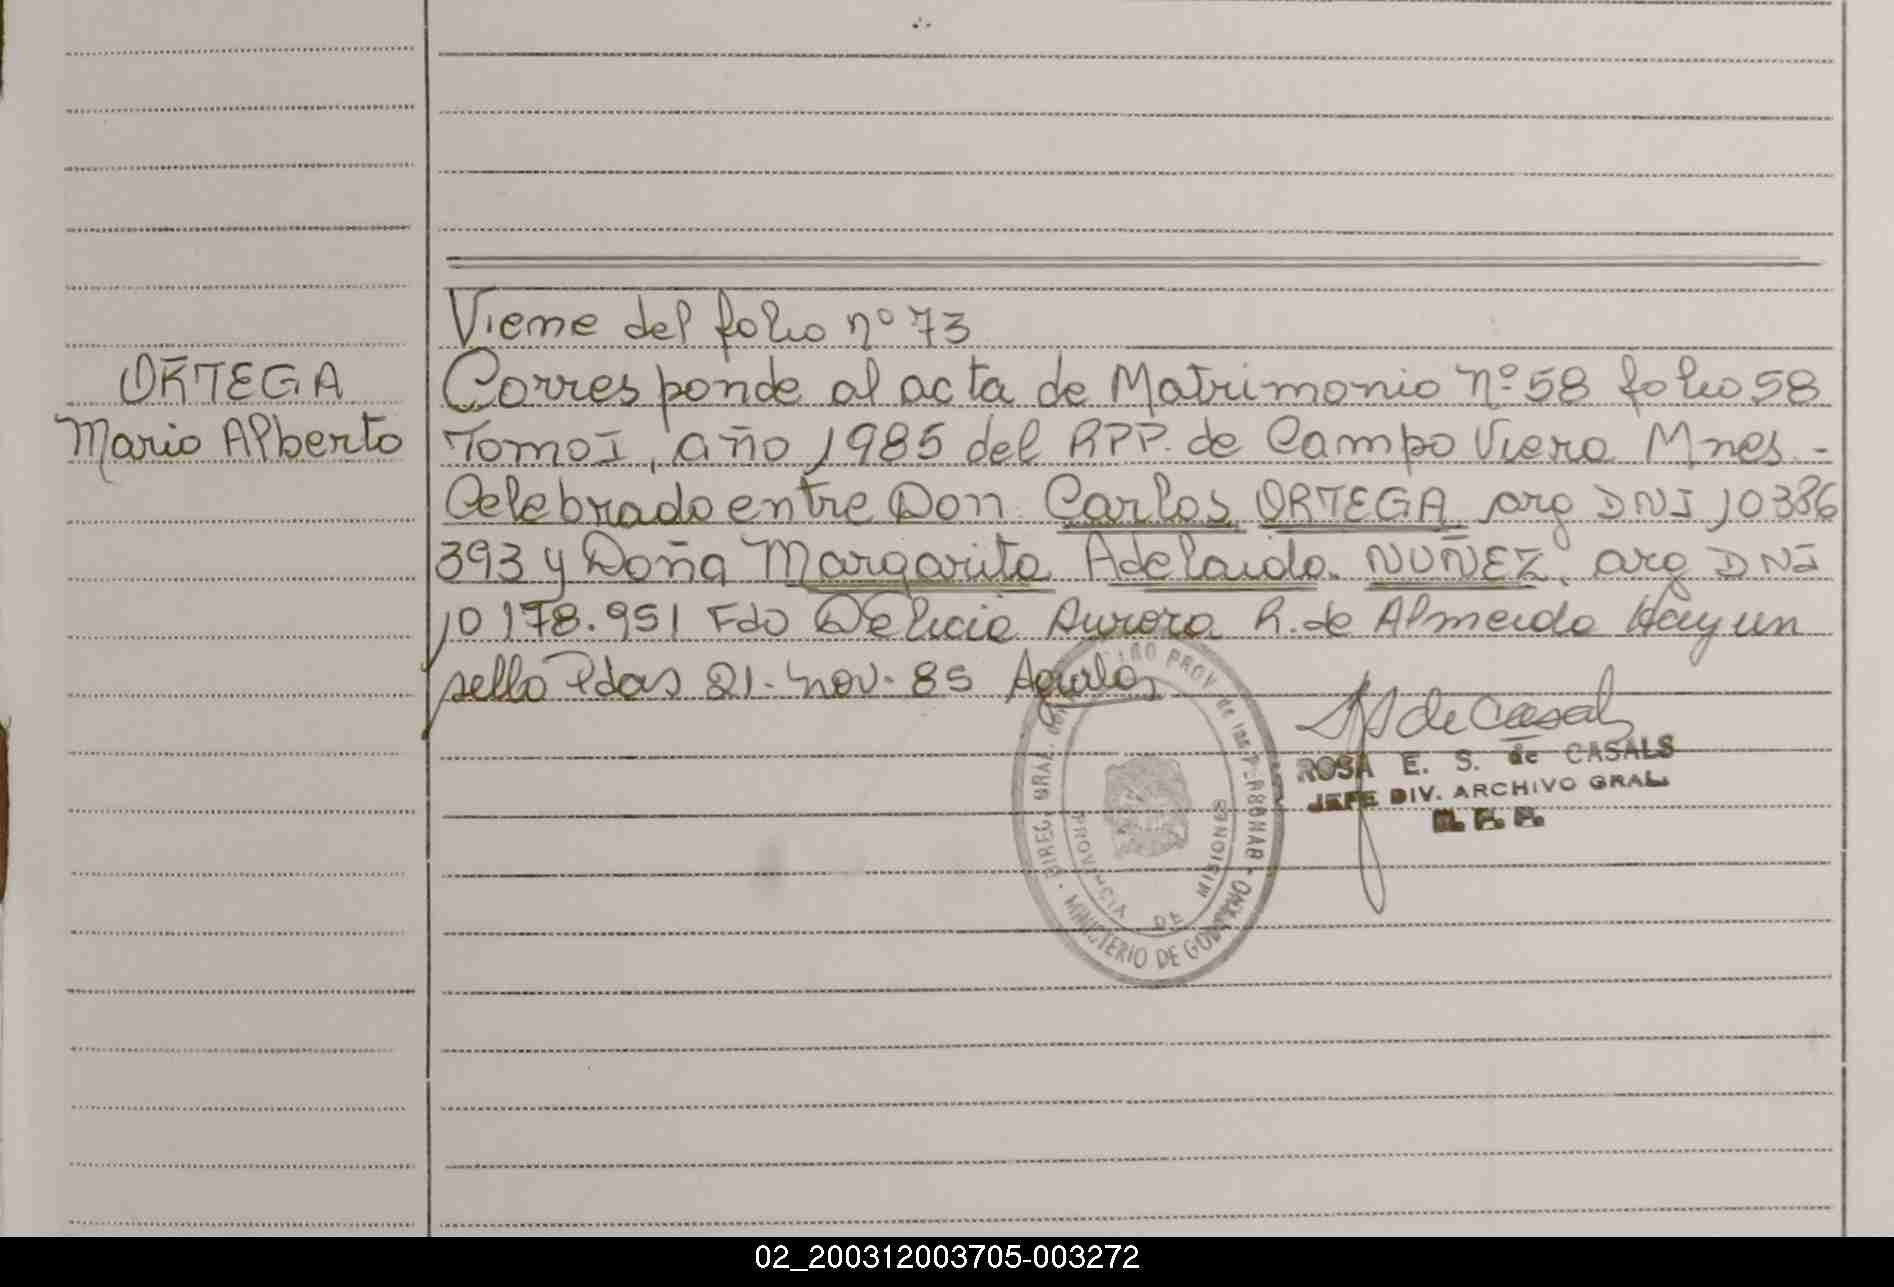 Viene del folio nº 73
ORTEGA
Mario Alberto
Corresponde al acta de Matrimonio nº 58 folio 58
Tomo I, año 1985 del RPP. de Campo Viera Mnes. -
Celebrado entre Don Carlos ORTEGA arg DNI 10386
393 y Doña Margarita Adelaida NUÑEZ, arg DNI
10178.951 Fdo Delicia Aurora R. de Almeida Hay un
sello Pdas 21-nov-85
de Casals
ROSA E. S. de CASALS
JEFE DIV. ARCHIVO GRAL.
R. P. P.
DIREC. GRAL. PROV de las PERSONAS - MINISTERIO DE GOBIERNO
PROVINCIA DE MISIONES
02_200312003705-003272